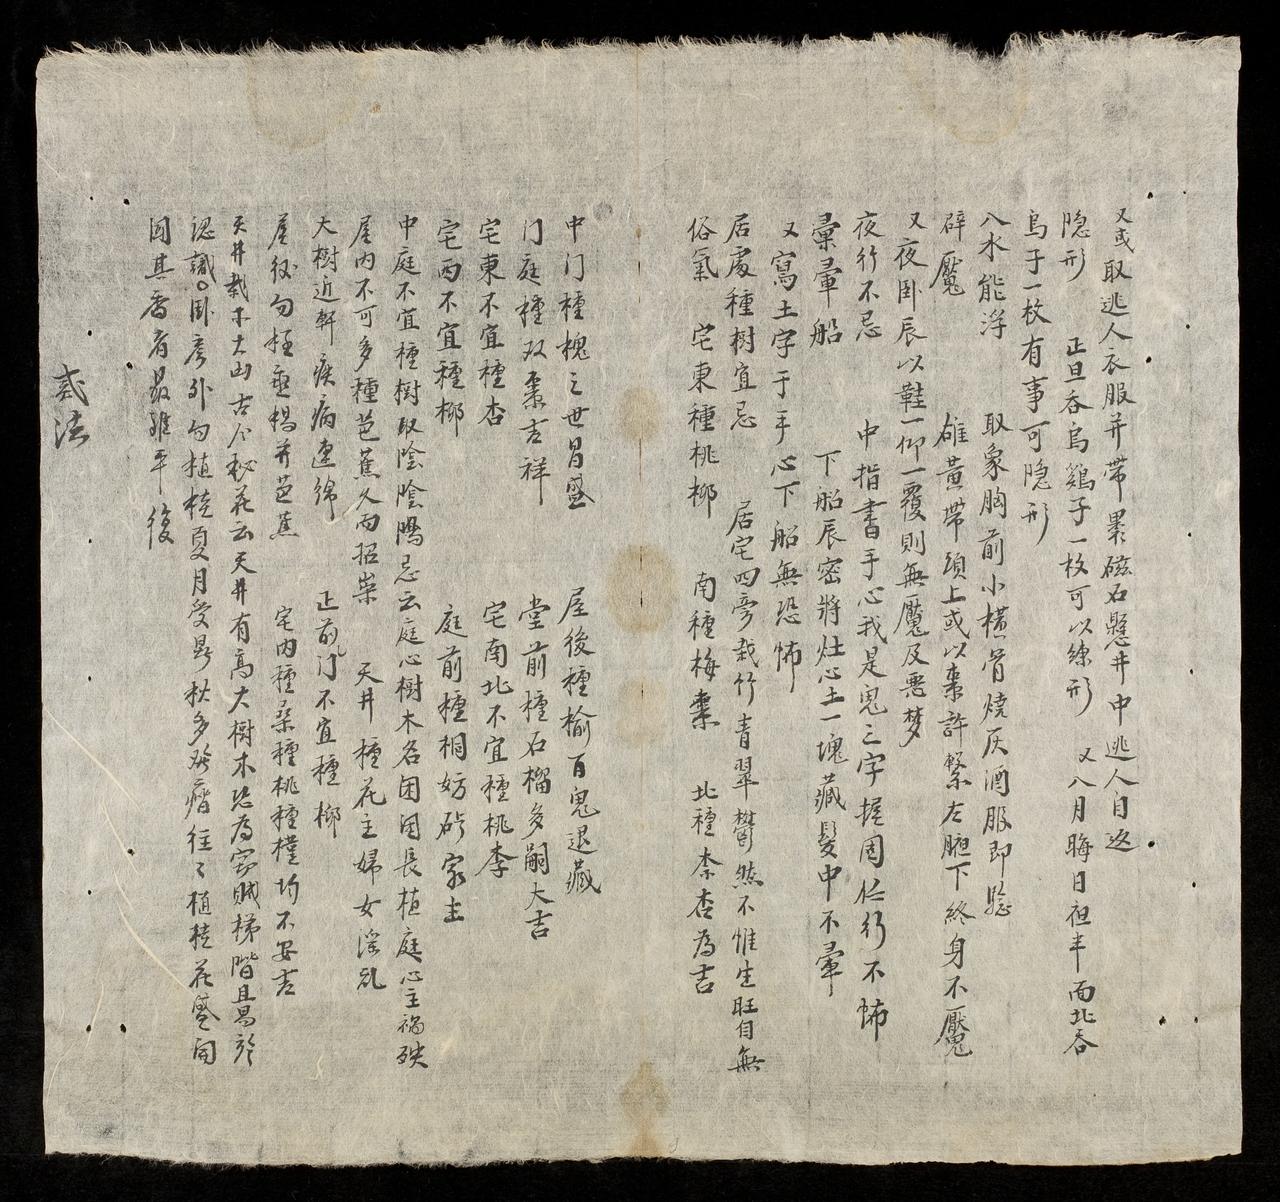 又或取逃人衣服并帶裹磁石懸井中逃人自返
隐形 正旦吞烏鷄子一枚可以練形 又八月晦日袒半面北吞
烏子一枚有事可隐形
入水能浮 取象胸前小橫骨燒灰酒服即驗
辟魘 雄黃帶頭上或以棗許繫左腋下終身不魘
又夜卧辰以鞋一仰一覆則無魘及悪梦
夜行不忌 中指書手心我是鬼三字握固任行不怖
暈船 下船辰密將灶心土一塊藏髮中不暈
又寫土字于手心下船無恐怖
居處種樹宜忌 居宅四旁栽竹青翠鬱然不惟生旺自無
俗氣 宅東種桃柳 南種梅棗 北種柰杏為吉
中门種槐三世昌盛 屋後種榆百鬼退藏
门庭種双棗吉祥 堂前種石榴多嗣大吉
宅東不宜種杏 宅南北不宜種桃李
宅西不宜種柳 庭前種桐妨 家主
中庭不宜種樹取陰陰陽忌云庭心樹木名困困長植庭心主禍殃
屋内不可多種芭蕉久而招祟 天井種花主婦女淫乱
大樹近軒疾病連綿 正前门不宜種柳
屋後勿 芭蕉 宅内種桑種桃種槿均不安吉
天井栽木 古人 花云天井有高大樹木恐為宻賊梯階且
認識。卧房外勿植桂夏月受暑秋多 瘤往々植桂花盛開
聞其香者最難平復
惑法